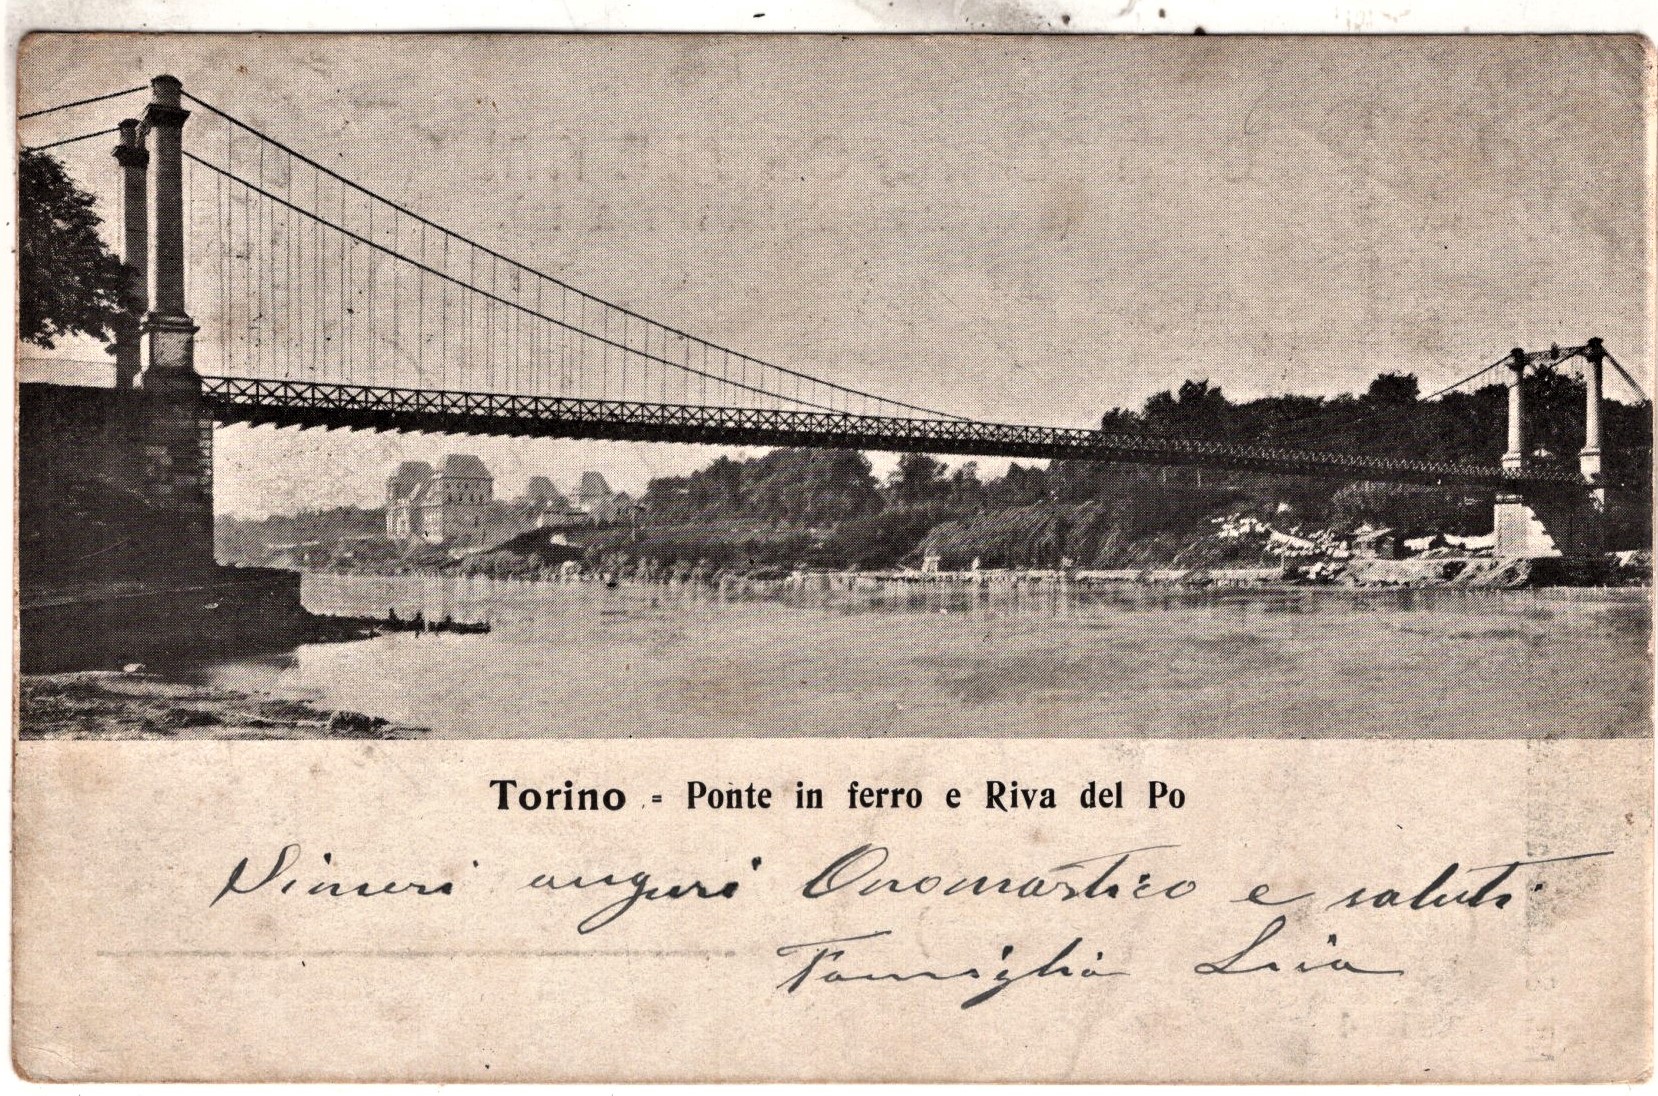 Torino = Ponte in ferro e Riva del Po
Sinceri auguri Onomastico e saluti
Famiglia